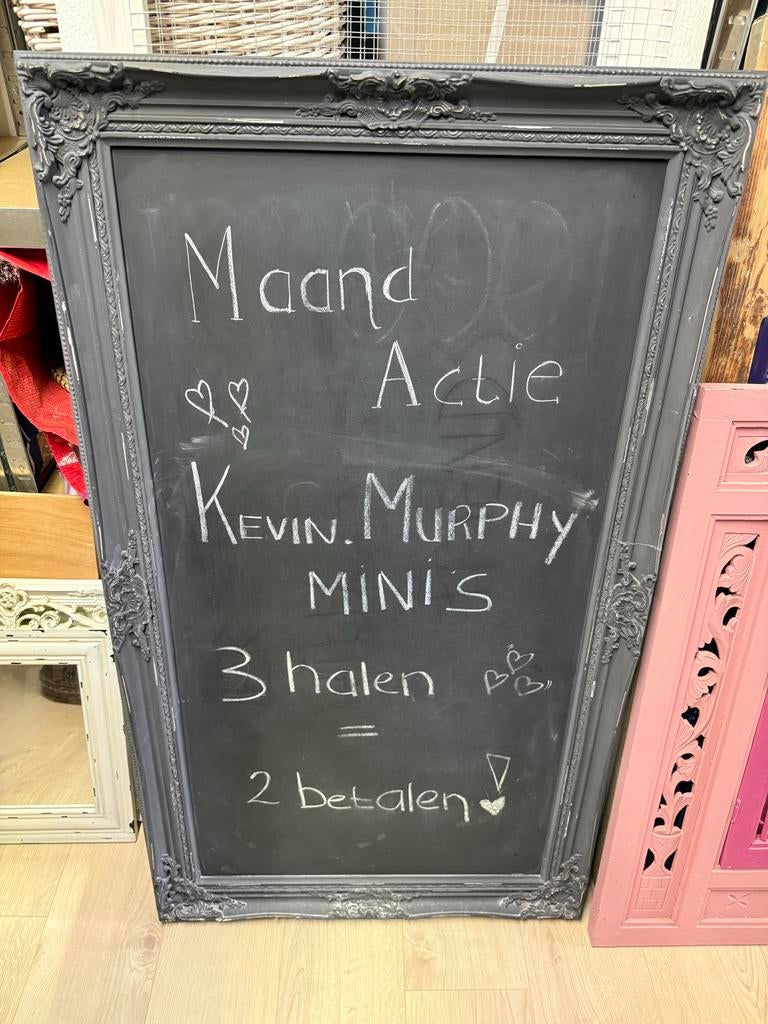 Maand
Actie
KEVIN.MURPHY
MINIS
3 halen
=
2 betalen!